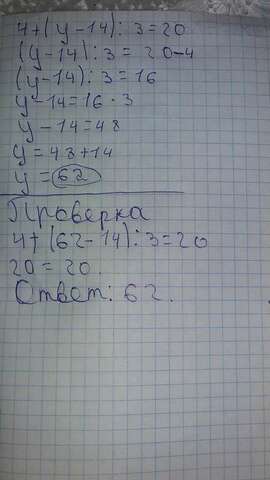 4+(y-14):3=20
(y-14):3=20-4
(y-14):3=16
y-14=16·3
y-14=48
y=48+14
y=62
Проверка
4+(62-14):3=20
20=20.
Ответ: 62.